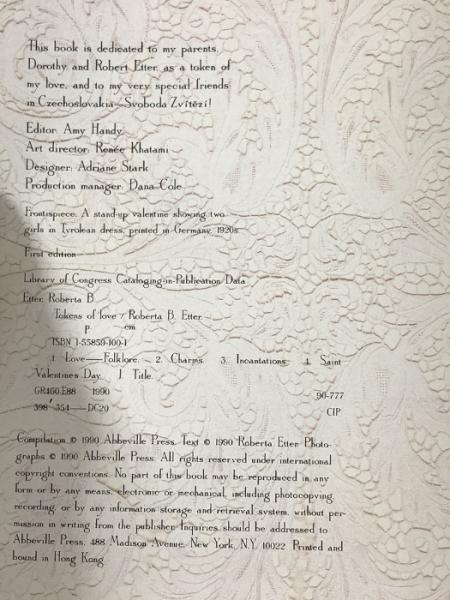 This book is dedicated to my parents,
Dorothy and Robert Etter, as a token of
my love, and to my very special friends
in Czechoslovakia—Svoboda Zvítězí!
Editor: Amy Handy
Art director: Renée Khatami
Designer: Adriane Stark
Production manager: Dana Cole
Frontispiece: A stand-up valentine showing two
girls in Tyrolean dress, printed in Germany, 1920s.
First edition
Library of Congress Cataloging-in-Publication Data
Etter, Roberta B.
Tokens of love / Roberta B. Etter.
p. cm.
ISBN 1-55859-100-1
1. Love—Folklore. 2. Charms. 3. Incantations. 4. Saint
Valentine's Day. I. Title.
GR460.E88 1990
90-777
398'.354—DC20
CIP
Compilation © 1990 Abbeville Press. Text © 1990 Roberta Etter. Photo-
graphs © 1990 Abbeville Press. All rights reserved under international
copyright conventions. No part of this book may be reproduced in any
form or by any means, electronic or mechanical, including photocopying,
recording, or by any information storage and retrieval system, without per-
mission in writing from the publisher. Inquiries should be addressed to
Abbeville Press, 488 Madison Avenue, New York, N.Y. 10022. Printed and
bound in Hong Kong.